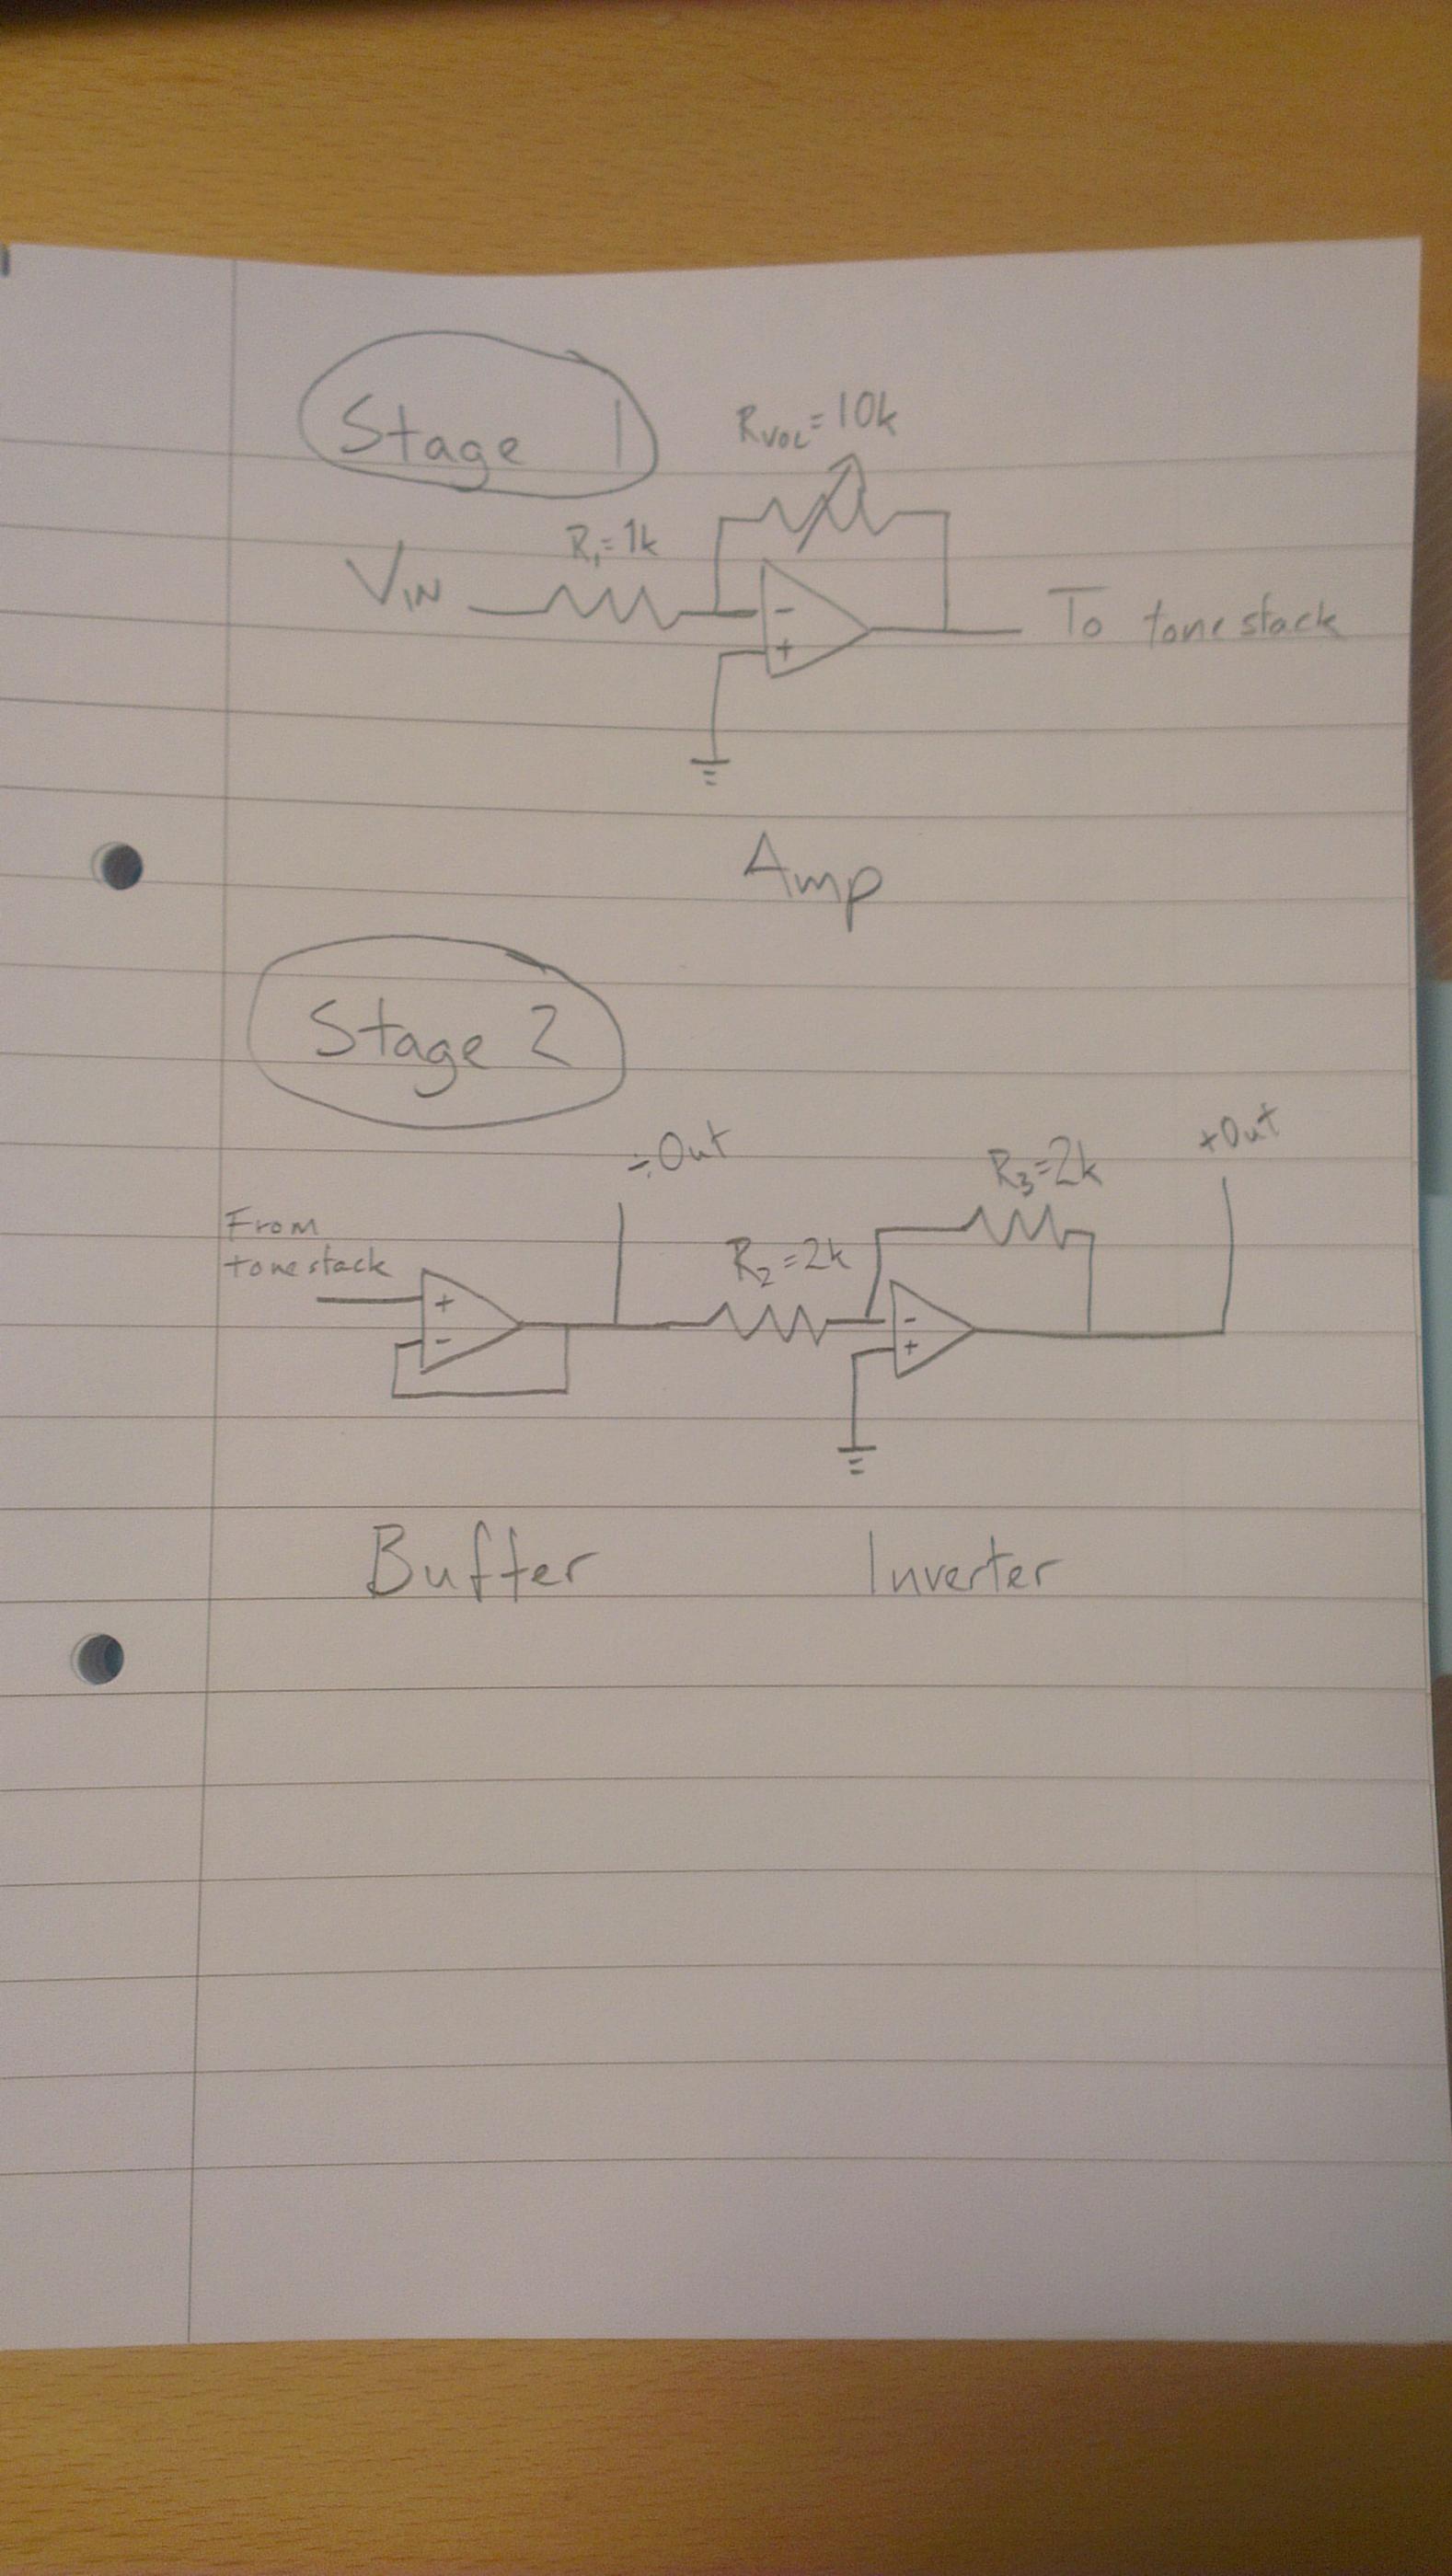 Stage 1
RVOL=10k
R1=1k
VIN
-
+
To tone stack
Amp
Stage 2
÷Out
+Out
R3=2k
From
tone stack
R2=2k
+
-
-
+
Buffer
Inverter